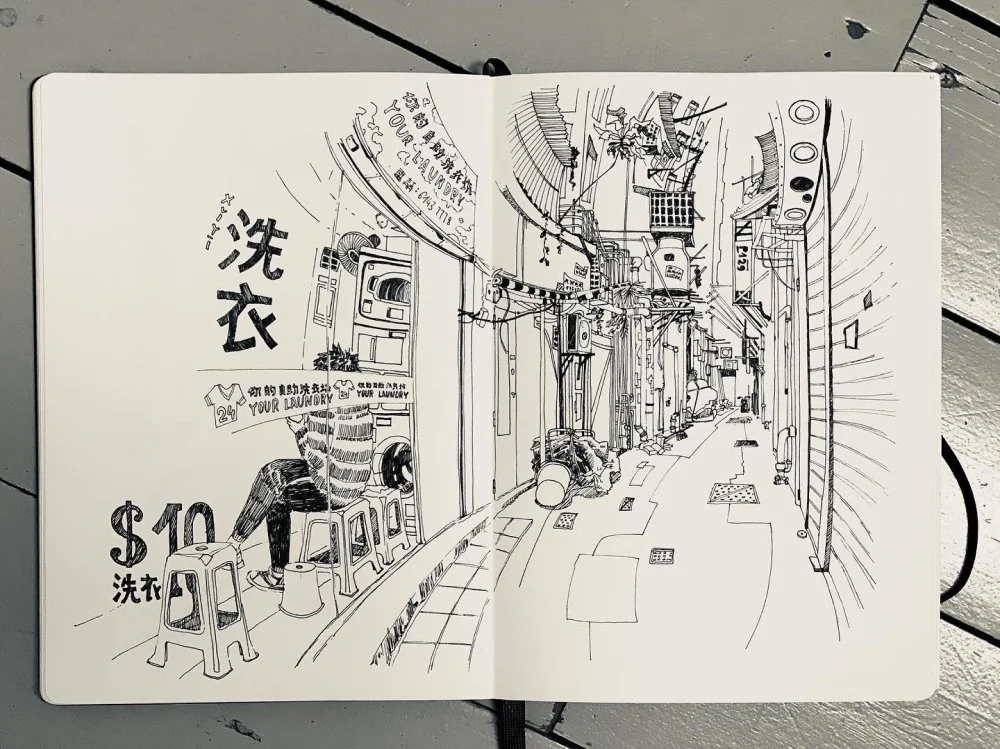 你的自助洗衣坊
YOUR LAUNDRY
洗
衣
24
你的自助洗衣坊
YOUR LAUNDRY
24
你的自助洗衣坊
YOUR LAUNDRY
$10
洗衣